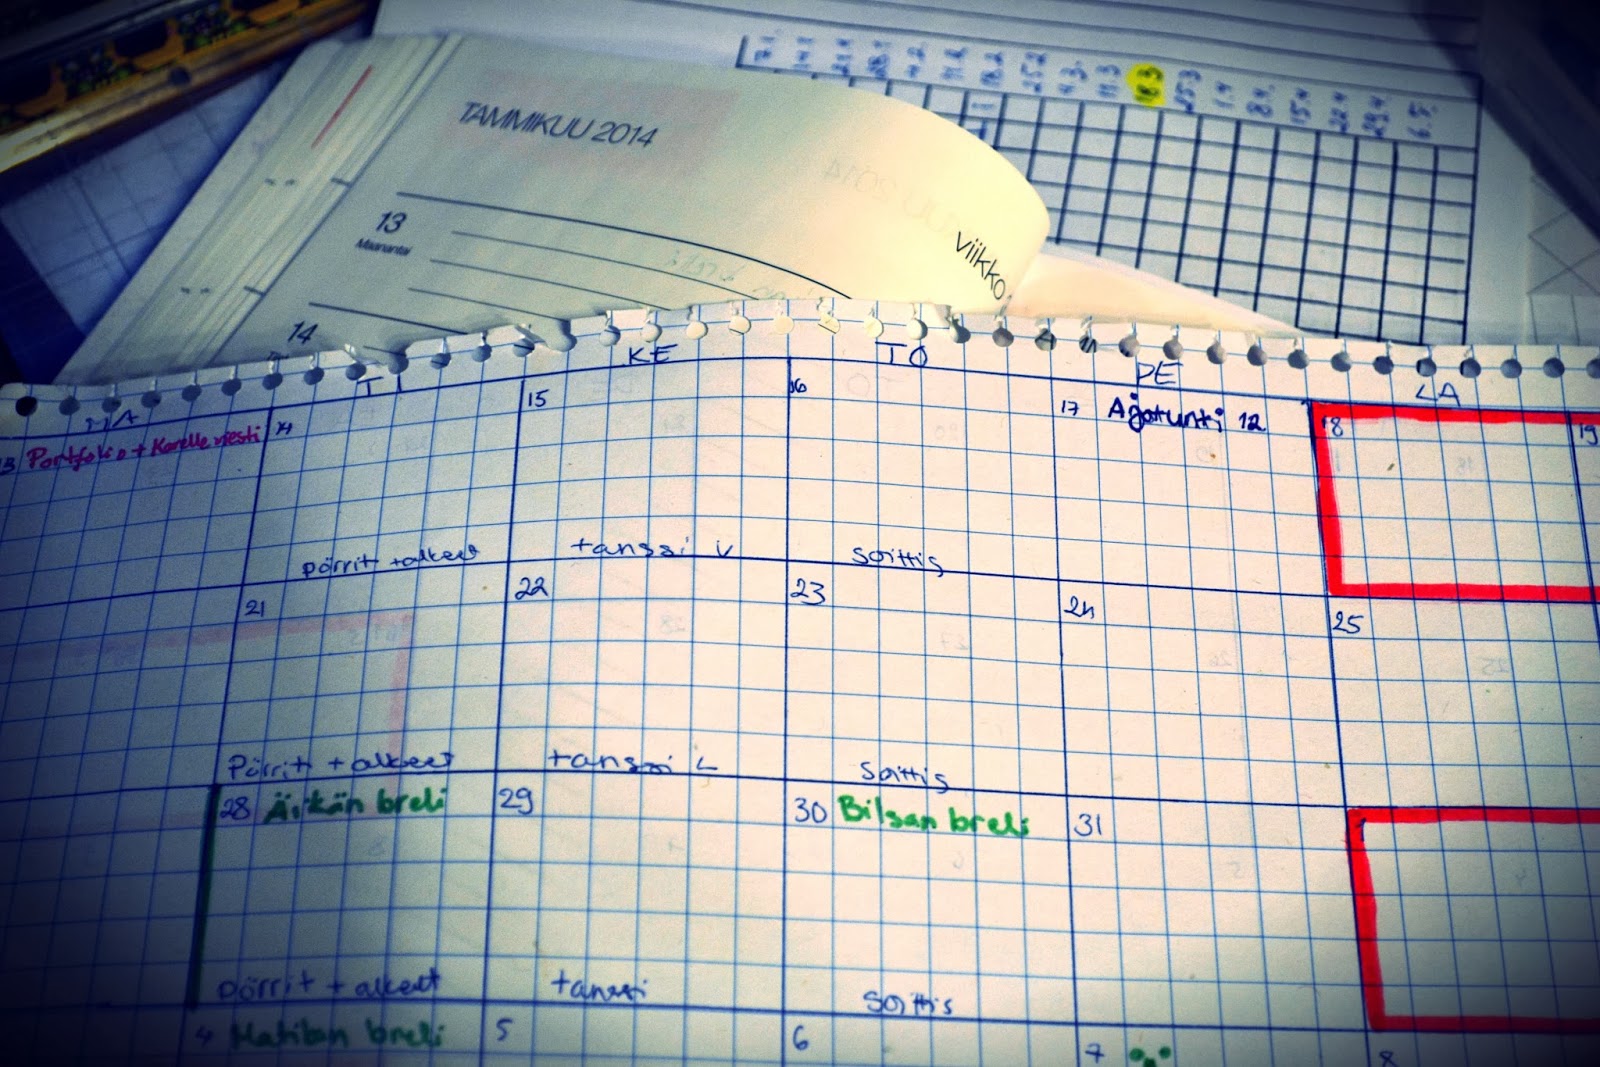 7.1.
18.2
25.2
4.3.
11.3
18.3
25.3
1.4
8.4.
15.4
22.4
29.4.
6.5.
TAMMIKUU 2014
13
Maanantai
viikko
14
MA TI KE TO PE LA
13 Portfolio + Korelle viesti 14 15 16 17 Ajotunti 12 18 19
pörrit + alkeet tanssi V soittis
21 22 23 24 25
Pörrit + alkeet tanssi L soittis
28 Äikän breli 29 30 Bilsan breli 31 1
pörrit + alkeet tanssi soittis
4 Matikan breli 5 6 7 8